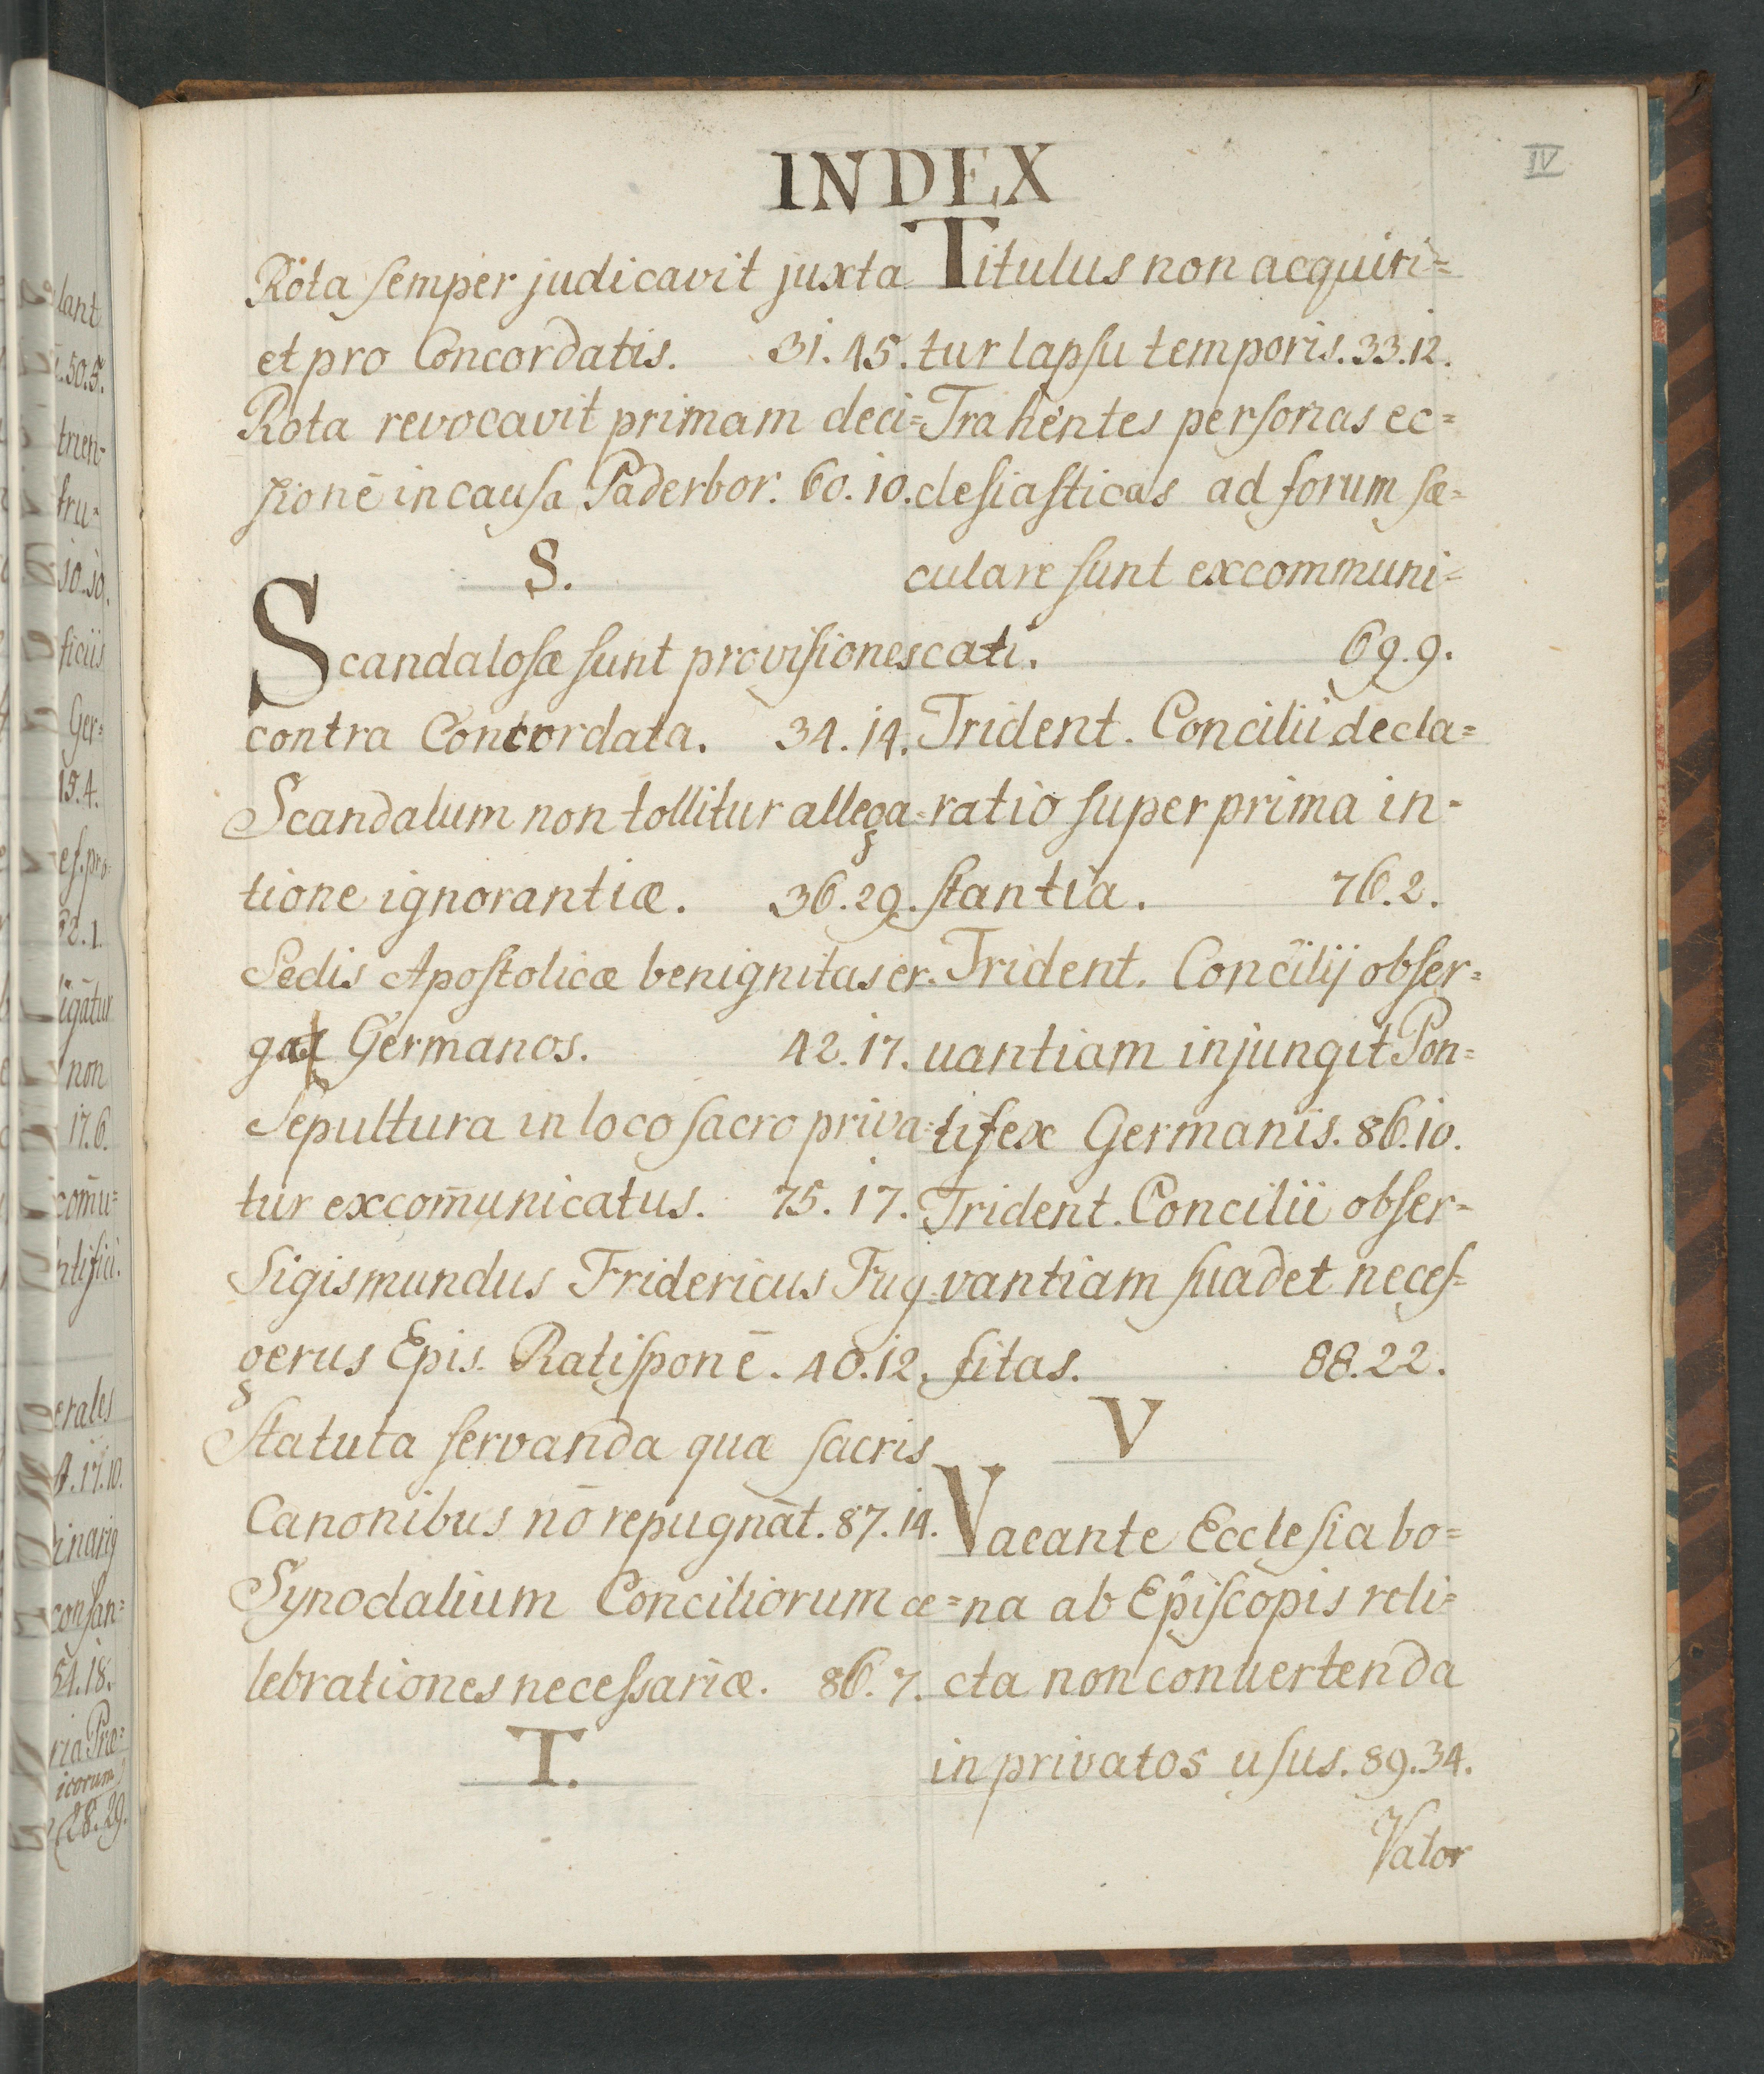 INDEX
IV
Rota semper judicavit juxta
et pro Concordatis. 31.45.
Rota revocavit primam deci=
sionē in causa Paderbor. 60.10.
S.
Scandalosæ sunt provisiones
contra Concordata. 34.14.
Scandalum non tollitur allega=
tione ignorantiæ. 36.29.
Sedis Apostolicæ benignitas er=
ga Germanos. 42.17.
Sepultura in loco sacro priva=
tur excom̄unicatus. 75.17.
Sigismundus Fridericus Fug=
gerus Epis. Ratisponē. 40.12.
Statuta servanda quæ sacris
Canonibus nō repugnāt. 87.14.
Synodalium Conciliorum ce=
lebrationes necessariæ. 86.7.
T.
Titulus non acquiri=
tur lapsu temporis. 33.12.
Trahentes personas ec=
clesiasticas ad forum sæ=
culare sunt excommuni=
cati. 69.9.
Trident. Concilii decla=
ratio super prima in=
stantia. 76.2.
Trident. Concilij obser=
uantiam injungit Pon=
tifex Germanis. 86.10.
Trident. Concilii obser=
vantiam suadet neces=
sitas. 88.22.
V
Vacante Ecclesia bo=
na ab Episcopis reli=
cta non conuertenda
in privatos usus. 89.34.
Valor